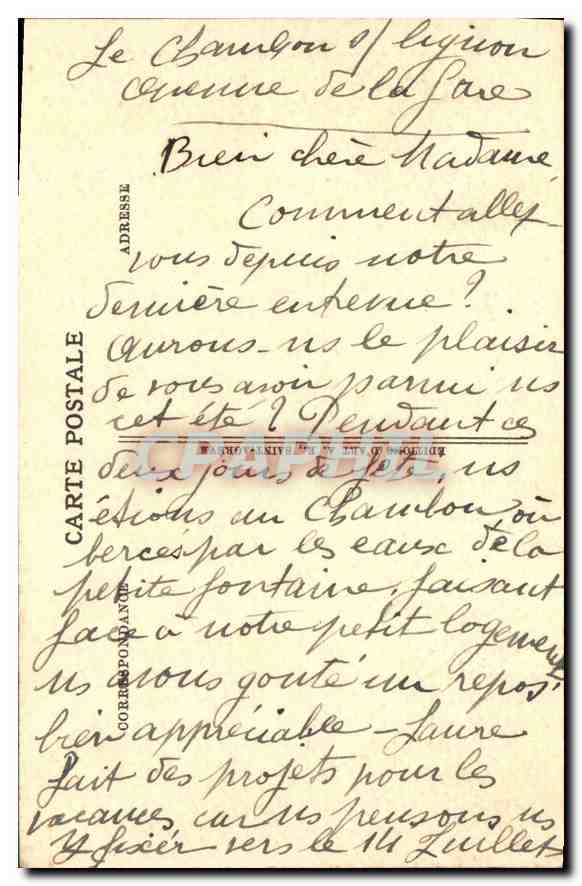 Le Chambon s/ lignon
Avenue de la Gare
Bien chère Madame,
Comment allez
vous depuis notre
dernière entrevue?
Aurons-ns le plaisir
de vous avoir parmi ns
cet été? Pendant ces
deux jours de fête, ns
étions au Chambon où
bercés par les eaux de la
petite fontaine, faisant
face à notre petit logement
ns avons gouté un repos
bien appréciable - Laure
fait des projets pour les
vacances car ns pensons ns
y fixer vers le 14 Juillet
ADRESSE
CARTE POSTALE
CORRESPONDANCE